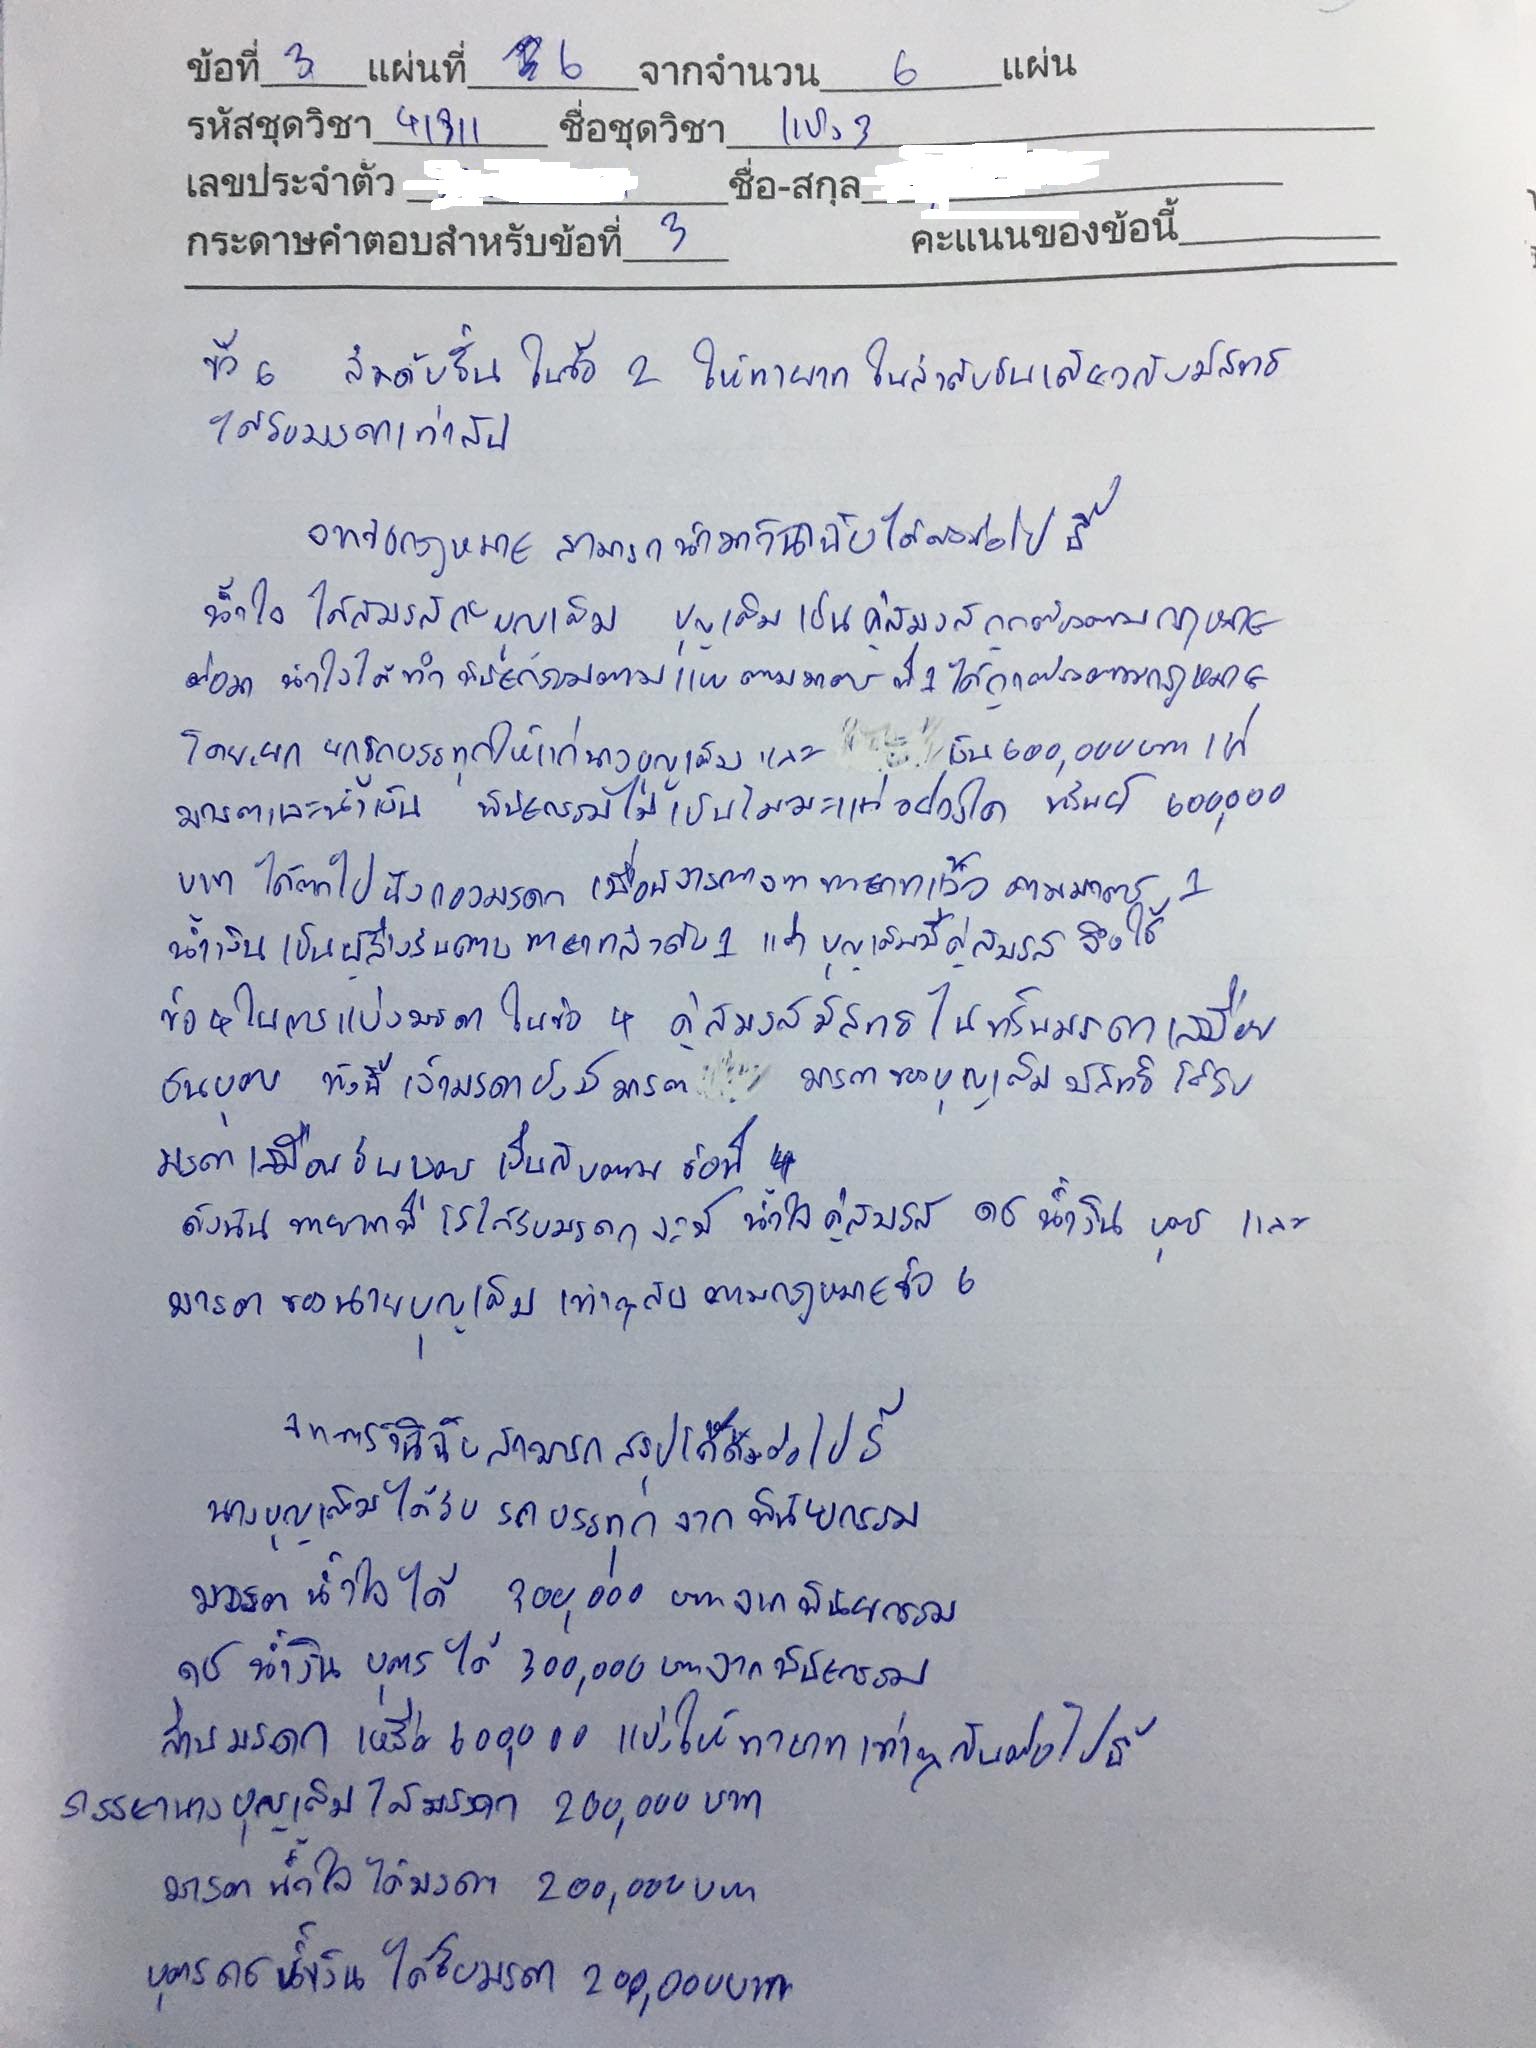 ข้อที่ 3 แผ่นที่ 6 จากจำนวน 6 แผ่น
รหัสชุดวิชา 41311 ชื่อชุดวิชา แพ่ง 3
เลขประจำตัว ชื่อ-สกุล
กระดาษคำตอบสำหรับข้อที่ 3 คะแนนของข้อนี้
ข้อ 6 ลำดับชั้น ในข้อ 2 ให้ทายาท ในลำดับชั้นเดียวกันมีสิทธิ
ได้รับมรดกเท่ากัน
จากข้อกฎหมาย สามารถนำมาวินิจฉัยได้ดังต่อไปนี้
น้ำใจ ได้สมรสกับบุญเสริม บุญเสริม เป็นคู่สมรสถูกต้องตามกฎหมาย
ต่อมา น้ำใจได้ทำ พินัยกรรมตามแบบ ตามมาตรา ที่ 1 ได้ถูกต้องตามกฎหมาย
โดยยก ยกรถบรรทุกให้แก่นางบุญเสริม และ เงิน 600,000 บาท แก่
มารดาและน้ำเงิน พินัยกรรมไม่เป็นโมฆะแต่อย่างใด ทรัพย์ 600,000
บาท ได้ตกไปยังกองมรดก เมื่อพิจารณาจากทายาทแล้ว ตามมาตรา 1
น้ำเงิน เป็นผู้สืบสันดาน ทายาทลำดับ 1 แต่ บุญเสริมมีคู่สมรส จึงใช้
ข้อ 4 ในการแบ่งมรดก ในข้อ 4 คู่สมรสมีสิทธิ ในทรัพย์มรดกเสมือน
ชั้นบุตร ทั้งนี้ เจ้ามรดกยังมี มารดา มารดาของบุญเสริม มีสิทธิ ได้รับ
มรดกเสมือนชั้นบุตร เช่นกันตาม ข้อที่ 4
ดังนั้น ทายาทที่ได้รับมรดก จะมี น้ำใจ คู่สมรส ดช น้ำเงิน บุตร และ
มารดา ของนายบุญเสริม เท่าๆกัน ตามกฎหมายข้อ 6
จากการวินิจฉัยสามารถ สรุปได้ดังต่อไปนี้
นางบุญเสริมได้รับ รถบรรทุก จาก พินัยกรรม
มารดา น้ำใจ ได้ 300,000 บาทจากพินัยกรรม
ดช น้ำเงิน บุตร ได้ 300,000 บาทจากพินัยกรรม
ส่วนมรดก เหลือ 600,000 แบ่งให้ทายาทเท่าๆกันต่อไปนี้
ภรรยานางบุญเสริม ได้มรดก 200,000 บาท
มารดา น้ำใจ ได้มรดก 200,000 บาท
บุตร ดช น้ำเงิน ได้รับมรดก 200,000 บาท